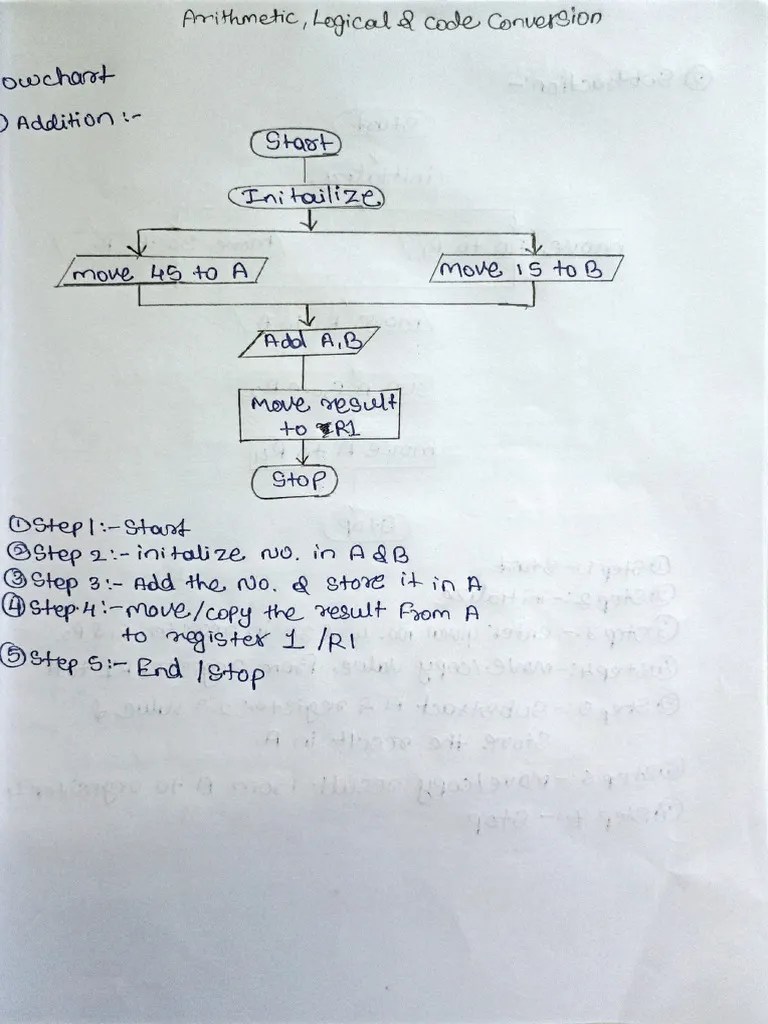 Arithmetic, Logical & code Conversion
owchart
) Addition :-
Start
Initailize
move 45 to A
Move 15 to B
Add A,B
Move result
to R1
Stop
① Step 1:- Start
② Step 2:- initalize No. in A & B
③ Step 3:- Add the No. & store it in A
④ Step 4:- move/copy the result From A
to register 1 /R1
⑤ Step 5:- End /Stop